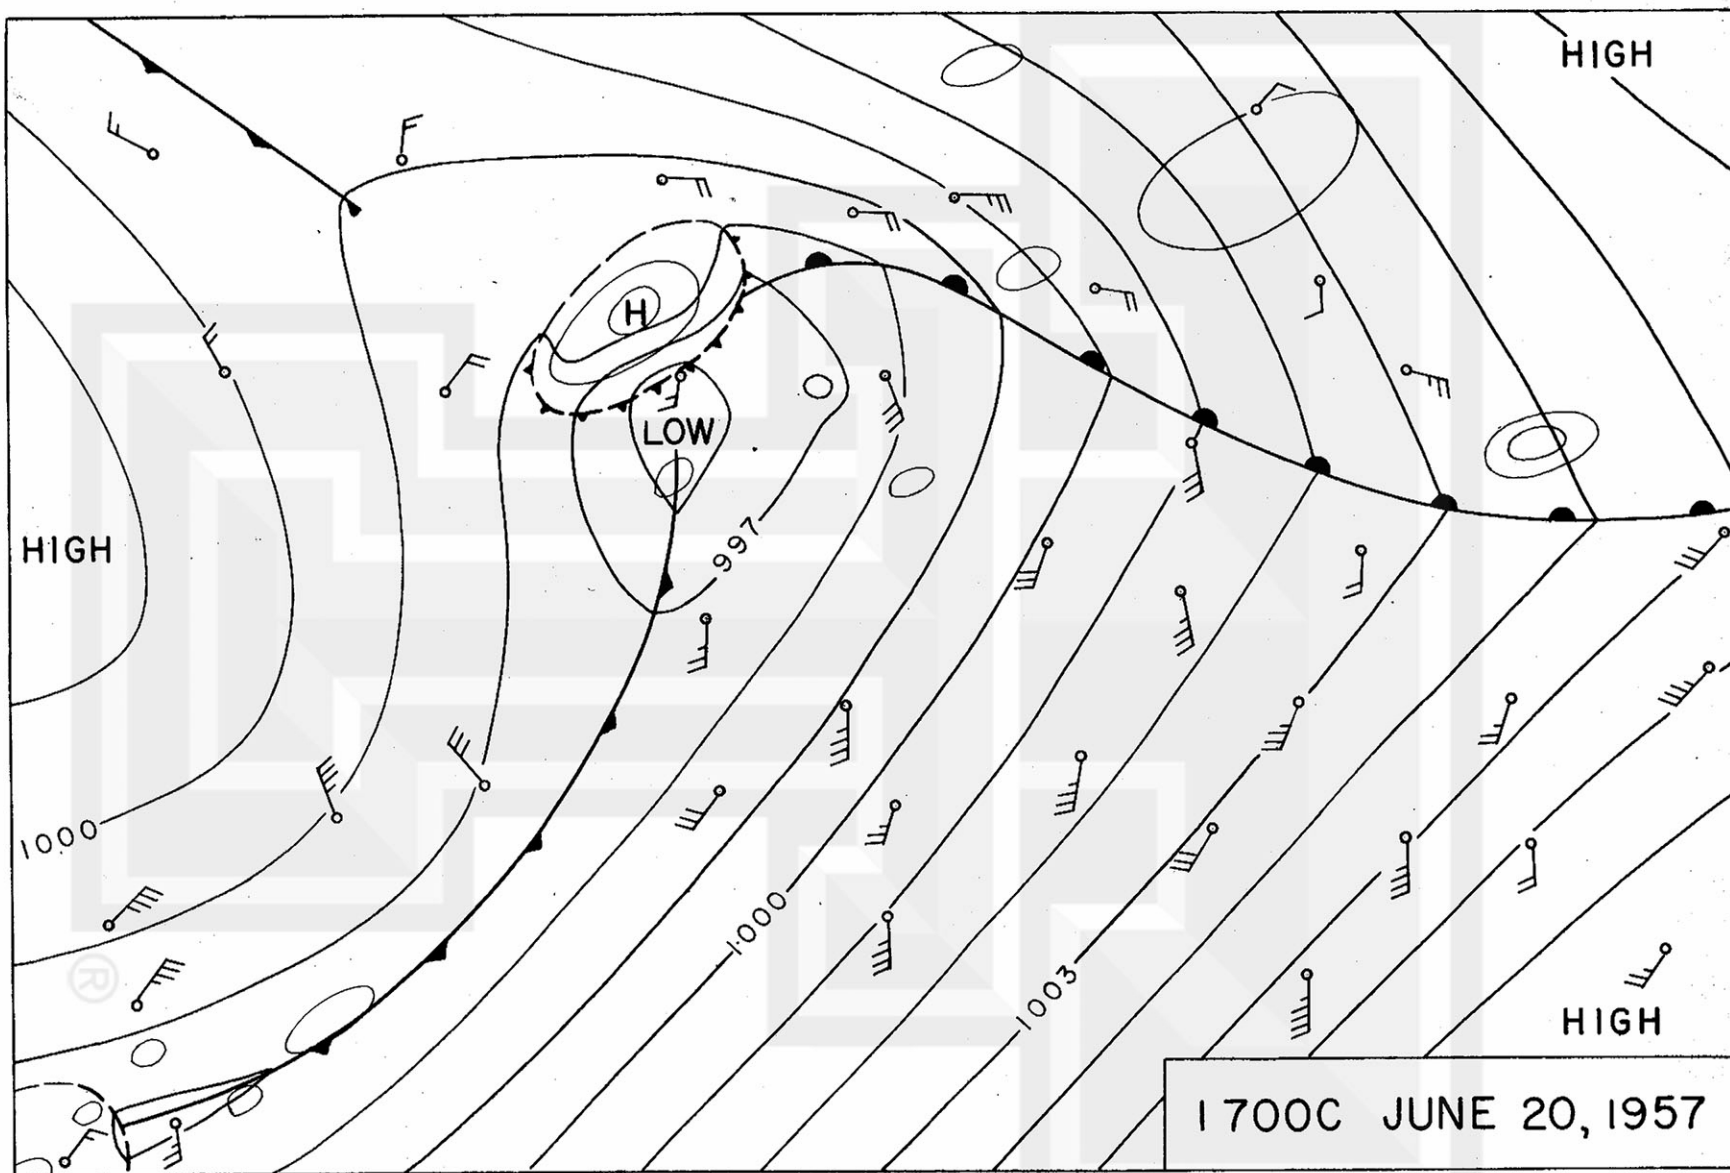 HIGH
H
LOW
997
HIGH
1000
1000
1003
HIGH
®
1700C JUNE 20, 1957